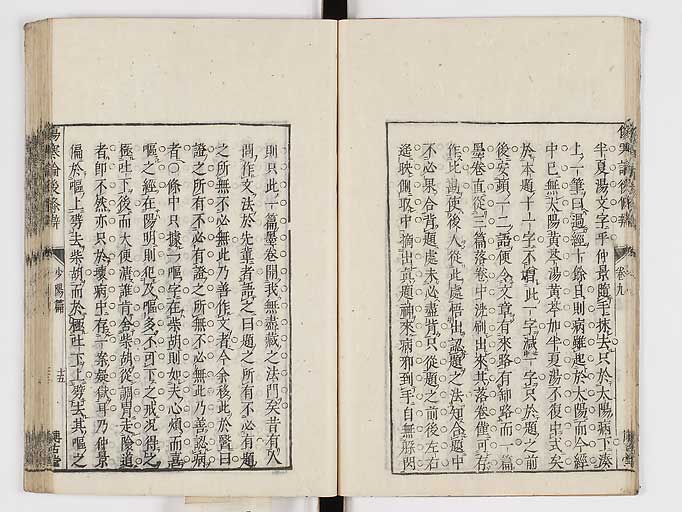 半夏湯文字乎仲景隨手抹去只於太陽病下湊
上一筆曰過經十餘日則病雖起於太陽而今經
中已無太陽黃芩湯黃芩加半夏湯不復中式矣
於本題十一字不增此一字減一字只於題之前
後安頓一二語便令文章有來路有卸路而一篇
墨卷直從三篇落卷中洗刷出來其落卷僅可存
作比勘使後人從此處悟出認題之法知合題中
不必果合背題處未必盡背只從題之前後左右
遙映側取中摘出真題神來病邪到手自無躲閃
則只此一篇墨卷開我無盡藏之法門矣昔有人
問作文法於先輩者語之曰題之所有不必有題
之所無不必無此乃善作文者今余移此於醫曰
證之所有不必有證之所無不必無此乃善認病
者○條中只據一嘔字在柴胡則如夫心煩而喜
嘔之經在陽明則犯及嘔多不可下之戒況得之
極吐下後而大便溏誰肯舍柴胡從調胃走險道
者即不然亦只於壞病中存一案疑獄耳乃仲景
偏於嘔上劈去柴胡而於極吐下上劈去其嘔之
傷寒論後條辨
少陽篇
十五
傷寒論後條辨
卷九